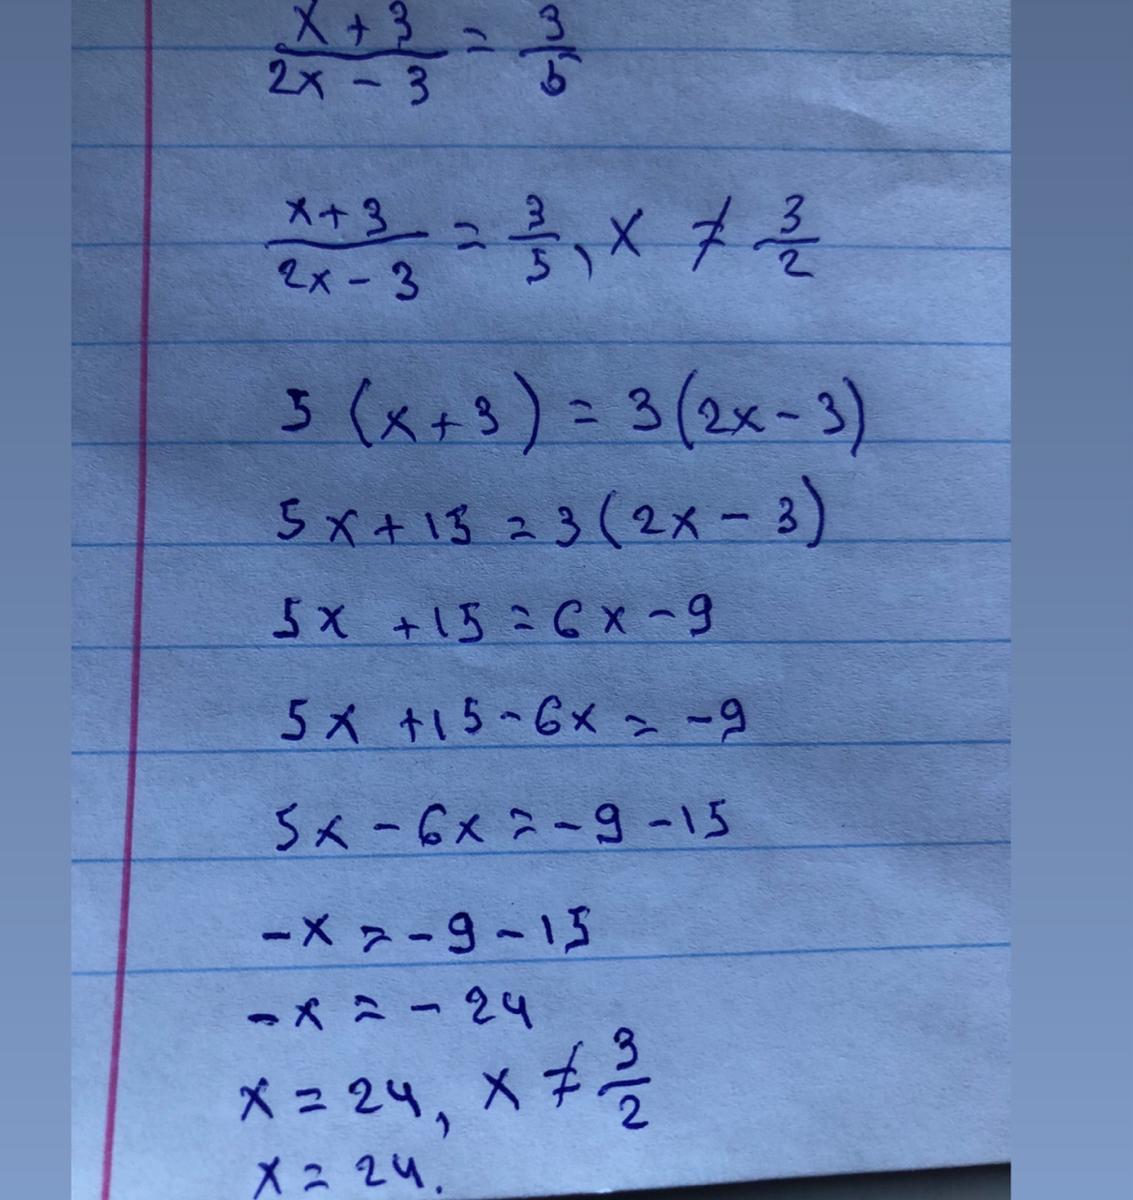 x + 3 / 2x - 3 = 3 / 5
x + 3 / 2x - 3 = 3 / 5, x ≠ 3 / 2
5 (x + 3) = 3 (2x - 3)
5x + 15 = 3 (2x - 3)
5x + 15 = 6x - 9
5x + 15 - 6x = -9
5x - 6x = -9 - 15
-x = -9 - 15
-x = -24
x = 24, x ≠ 3 / 2
x = 24.